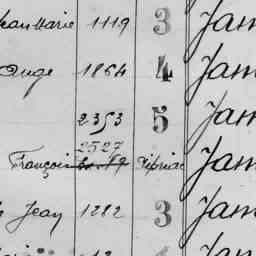 Jean Marie 1119 3 Jam
Ange 1864 4 Jam
2353 5 Jam
2527
François Jam
Jean 1212 3 Jam